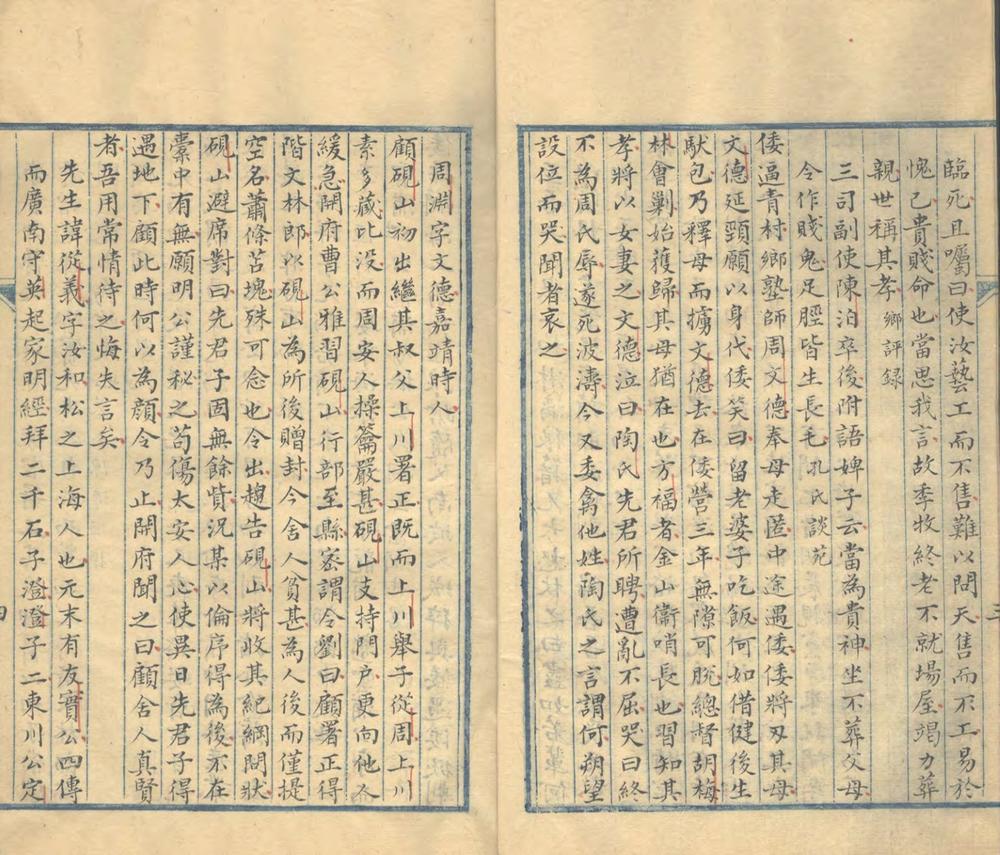 臨死且囑曰使汝藝工而不售難以問天售而不工易於
愧己貴賤命也當思我言故季牧終老不就場屋竭力葬
親世稱其孝鄉評錄
三司副使陳泊卒後附語婢子云當為貴神坐不葬父母
今作賤鬼足脛皆生長毛孔氏談苑
倭逼青村鄉塾師周文德奉母走匿中途遇倭倭將刃其母
文德延頸願以身代倭笑曰留老婆子吃飯何如借健後生
馱包乃釋母而擄文德去在倭營三年無隙可脫總督胡梅
林會剿始獲歸其母猶在也方福者金山衞哨長也習知其
孝將以女妻之文德泣曰陶氏先君所聘遭亂不屈哭曰終
不為周氏辱遂死波濤今又委禽他姓陶氏之言謂何朔望
設位而哭聞者哀之
三
周淵字文德嘉靖時人
顧硯山初出繼其叔父上川署正既而上川舉子從周上川
素多藏比没而周安人操籥嚴甚硯山支持門户更向他人
緩急開府曹公雅習硯山行部至縣密謂令劉曰顧署正得
階文林郎以硯山為所後贈封今舍人貧甚為人後而僅提
空名蕭條苫塊殊可念也令出趨告硯山將收其紀綱問狀
硯山避席對曰先君子固無餘貲况某以倫序得為後不在
橐中有無願明公謹秘之苟傷太安人心使異日先君子得
遇地下顧此時何以為顏令乃止開府聞之曰顧舍人真賢
者吾用常情待之悔失言矣
先生諱從義字汝和松之上海人也元末有友實公四傳
而廣南守英起家明經拜二千石子澄澄子二東川公定
四